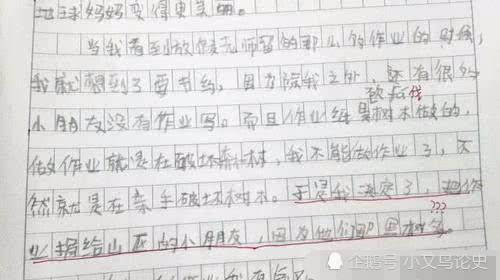 地球妈妈变得更美丽。
当我看到放假老师留的那么的作业的时候,
我就想到了要节约,因为除我之外,还有很多
小朋友没有作业写。而且作业纸是树木做的,
做作业就是在破坏森林,我不能做作业了,不
然就是在亲手破坏树木。于是我决定了,把作
???
业捐给山区的小朋友,因为他们那
企鹅号 小文乌论史